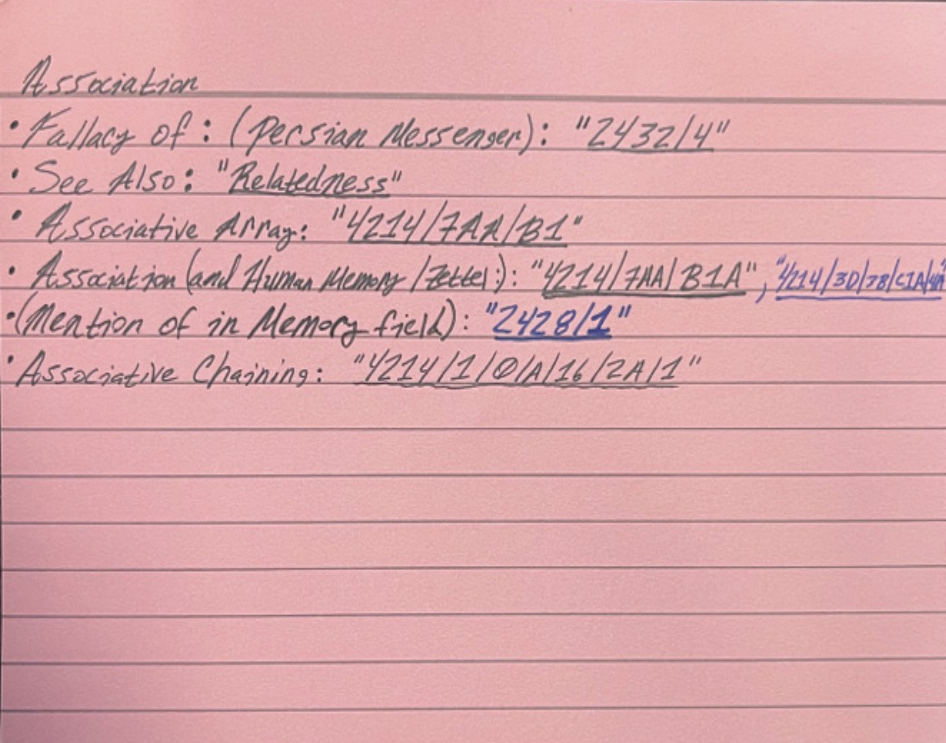 Association
• Fallacy of : (Persian Messenger): "2432/4"
• See Also: "Relatedness"
• Associative Array: "4214/7AA/B1"
• Association (and Human Memory / Zettel:): "4214/7AA/B1A", "4214/3D/78/C1A/4A"
• (Mention of in Memory field): "2428/1"
• Associative Chaining: "4214/1/0/A/16/2A/1"